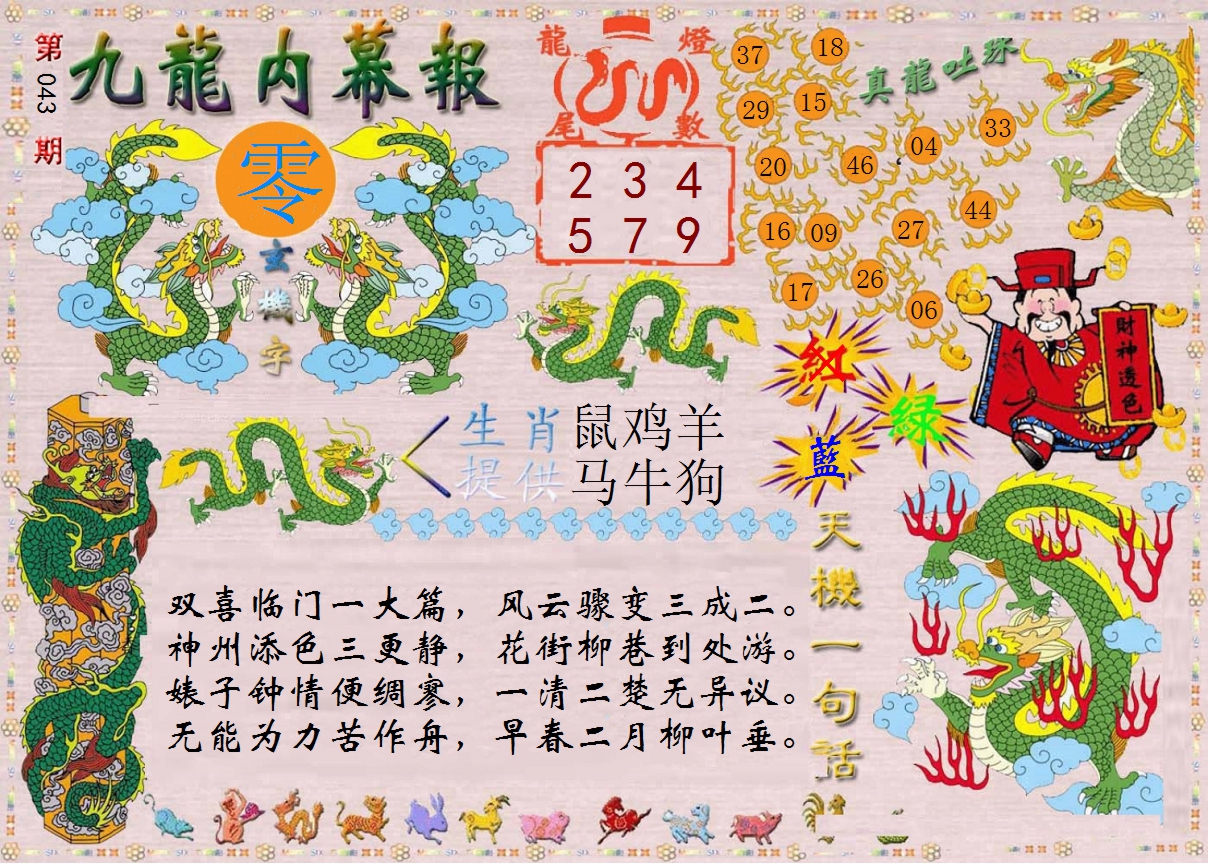 第043期
九龍内幕報
零
玄機字
龍燈
尾數
2 3 4
5 7 9
真龍吐珠
37 18
29 15
20 46 04 33
16 09 27 44
17 26 06
財神透色
紅
綠
藍
生肖 鼠鸡羊
提供 马牛狗
天機一句話
双喜临门一大篇，风云骤变三成二。
神州添色三更静，花街柳巷到处游。
婊子钟情便绸寥，一清二楚无异议。
无能为力苦作舟，早春二月柳叶垂。